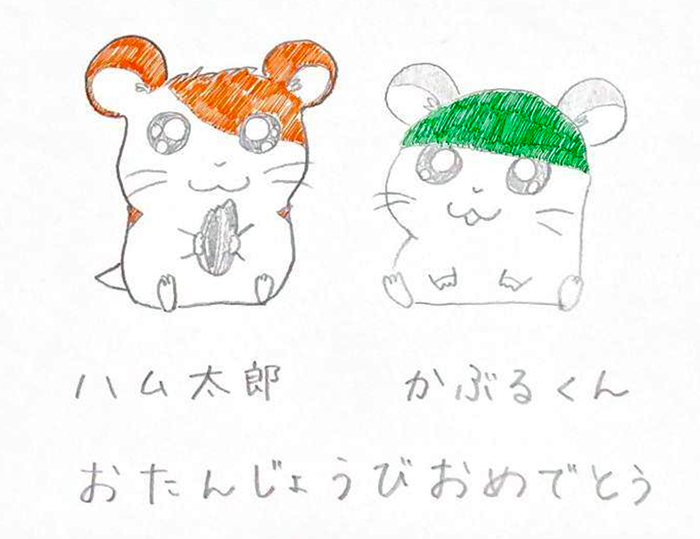 ハム太郎 かぶるくん
おたんじょうびおめでとう